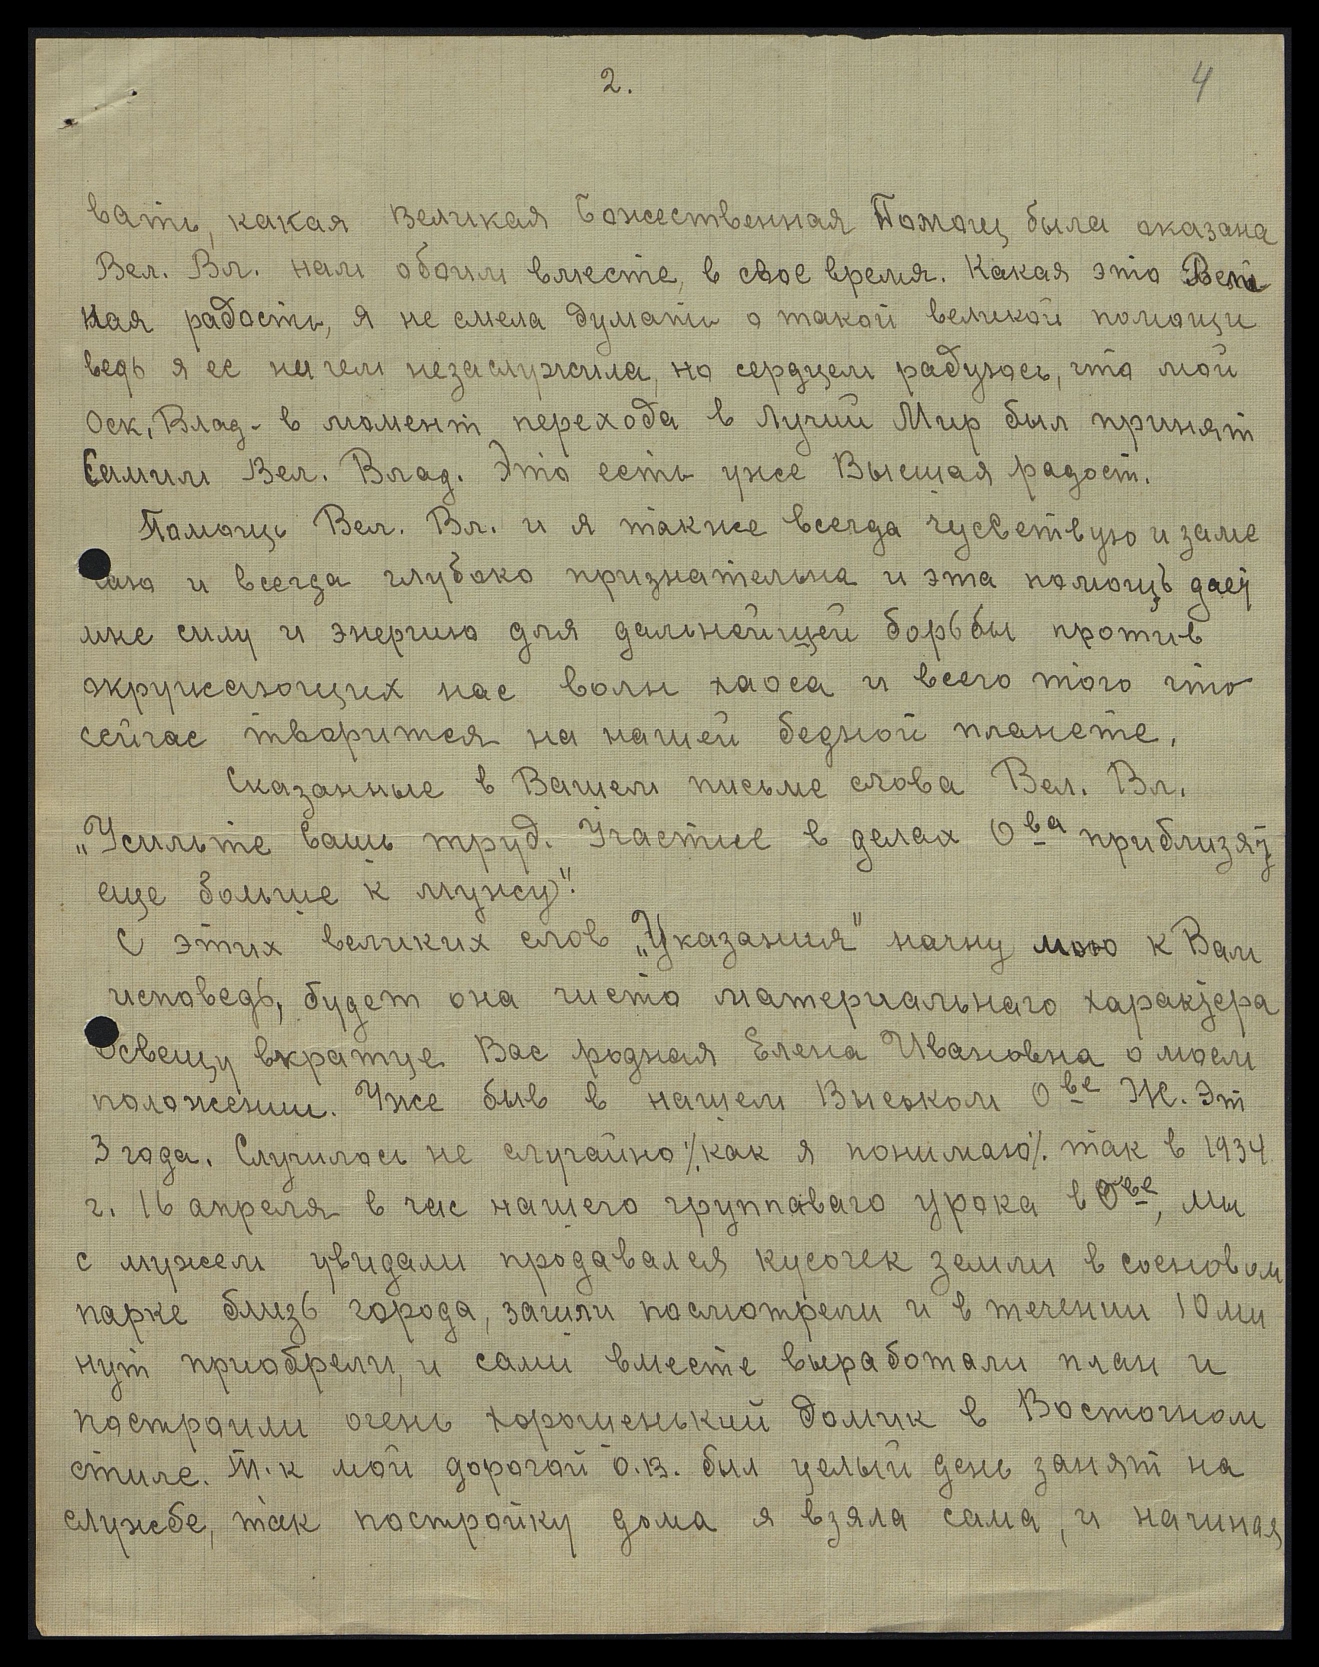 2.
4
вать, какая великая Божественная Помощ была оказана
Вел. Вл. нам обоим вместе, в свое время. Какая это
ная радость, я не смела думать о такой великой помощи
ведь я ее ни чем незаслужила, но сердцем радуюсь, что мой
Оск. Влад. в момент перехода в Лучий Мир был принят
Самим Вел. Влад. Это есть уже Высшая радост.
Помощь Вел. Вл. и я также всегда чусветвую и заме
чаю и всегда глубоко признательна и эта помощь дает
мне силу и энергию для дальнейшей борьбы против
окружающих нас волн хаоса и всего того что
сейчас творится на нашей бедной планете.
Сказанные в Вашем письме слова Вел. Вл.
„Усильте вашь труд. Участие в делах О-ва приблизят
еще больше к мужу".
С этих великих слов „Указания" начну мою к Вам
исповедь, будет она чисто материальнаго характера
Освещу вкратце Вас родная Елена Ивановна о моем
положении. Уже быв в нашем Высоком О-ве Ж. Эт
3 года. Случилось не случайно % как я понимаю % так в 1934
г. 16 апреля в час нашего группаваго урока в О-ве, мы
с мужем увидали продавался кусочек земли в сосновом
парке близь города, зашли посмотрели и в течении 10 ми
нут приобрели, и сами вместе выработали план и
построили очень хорошенький домик в Восточном
стиле. Т.к мой дорогой О.В. был целый день занят на
службе, так постройку дома я взяла сама, и начиная